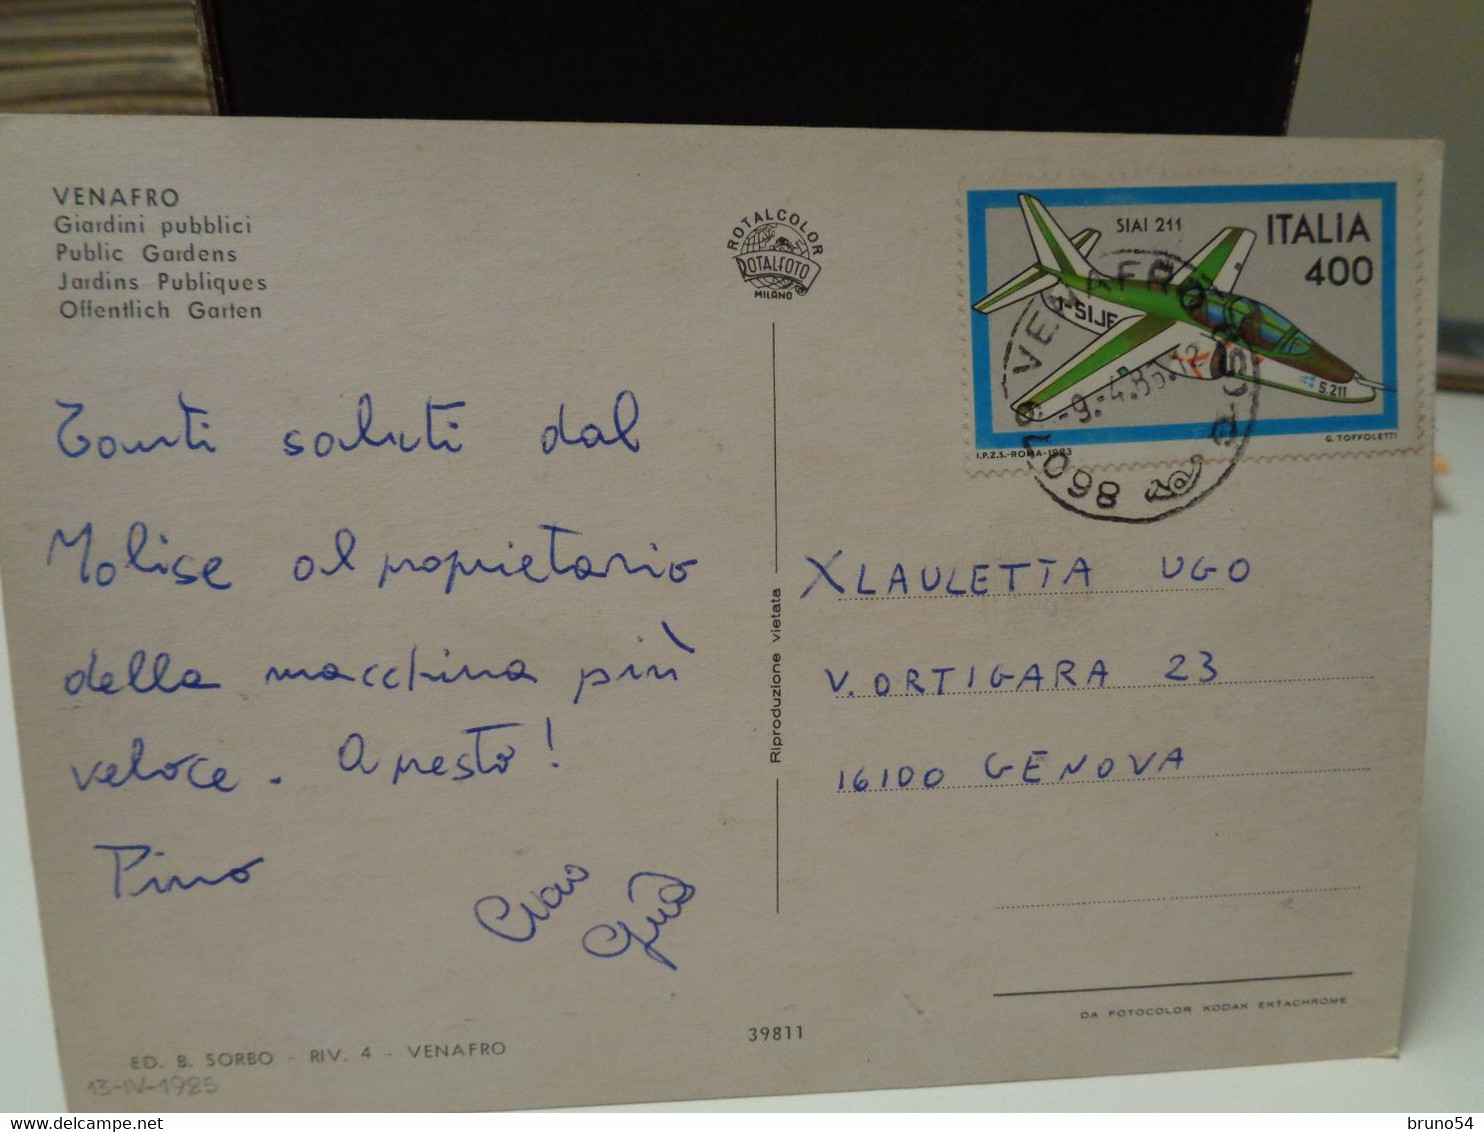 VENAFRO
Giardini pubblici
Public Gardens
Jardins Publiques
Offentlich Garten
ROTALCOLOR
ROTALFOTO
MILANO
SIAI 211
ITALIA
400
I-SIJE
S.211
I.P.Z.S.-ROMA-1983
G. TOFFOLETTI
86079 VENAFRO
-9.-4.85.12
Tanti saluti dal
Molise al proprietario
della macchina più
veloce. A presto!
Pino
Ciao
Riproduzione vietata
X LAULETTA UGO
V. ORTIGARA 23
16100 GENOVA
DA FOTOCOLOR KODAK EKTACHROME
39811
ED. B. SORBO - RIV. 4 - VENAFRO
13-IV-1985
bruno54